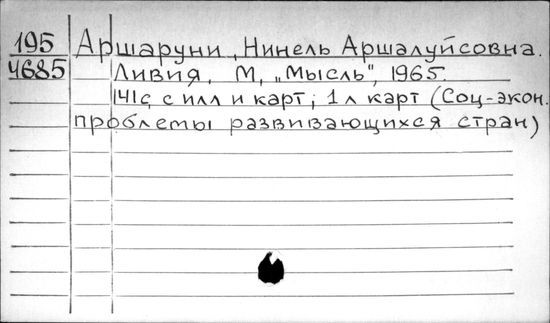 195 Аршаруни, Нинель Аршалуйсовна.
4685 Ливия, М, „Мысль", 1965.
141с, с илл и карт; 1 л карт (Соц-экон.
проблемы развивающихся стран)